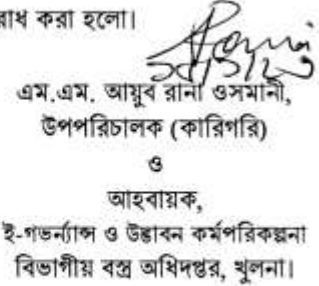 রোধ করা হলো।
এম.এম. আয়ুব রানা ওসমানী,
উপপরিচালক (কারিগরি)
ও
আহবায়ক,
ই-গভর্ন্যান্স ও উদ্ভাবন কর্মপরিকল্পনা
বিভাগীয় বস্ত্র অধিদপ্তর, খুলনা।